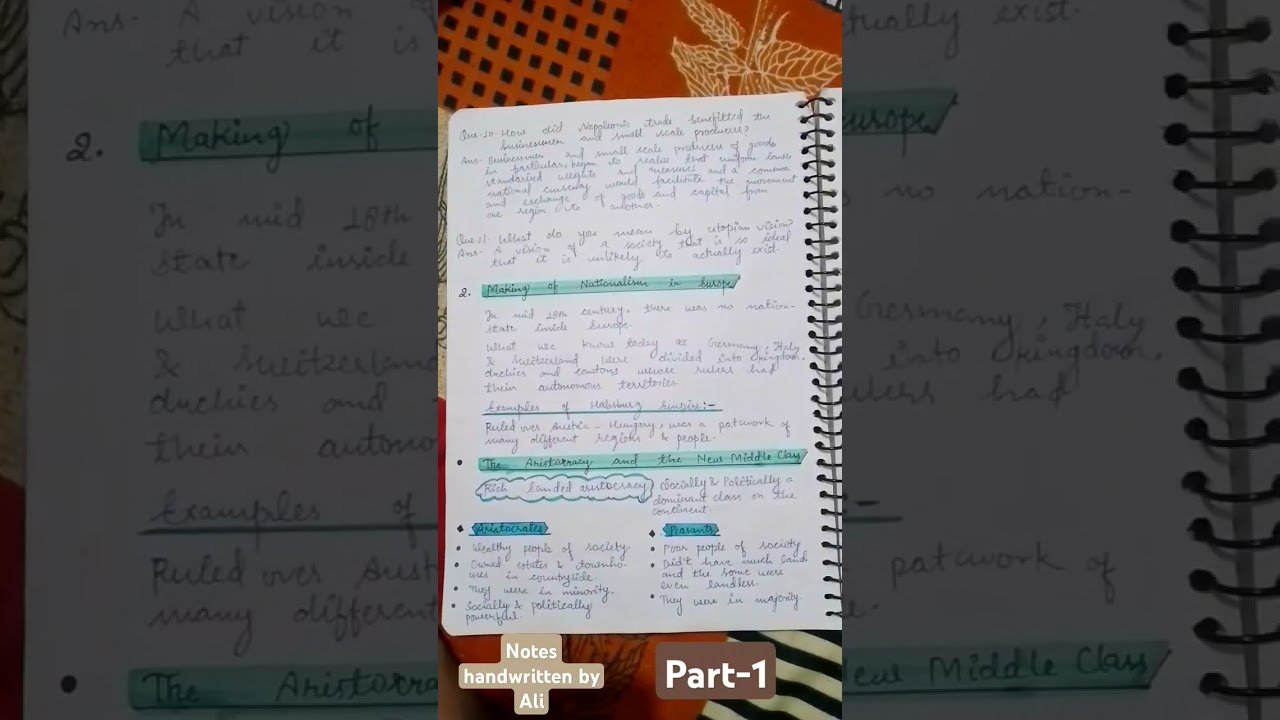 Que-10. How did Napoleonic trade benefitted the
businessmen and small scale producers?
Ans- Businessmen and small scale producers of goods
in particular, began to realise that uniform laws
standarised weights and measures and a common
national currency would facilitate the movement
and exchange of goods and capital from
one region to another.
Que-11. What do you mean by utopian vision?
Ans- A vision of a society that is so ideal
that it is unlikely to actually exist.
2. Making of Nationalism in Europe
In mid 18th century, there was no nation-
state inside Europe.
What we know today as Germany, Italy
& Switzerland were divided into kingdom,
duchies and cantons whose rulers had
their autonomous territories
Examples of Habsburg Empire:-
Ruled over Austria - Hungary, was a patwork of
many different regions & people.
• The Aristocracy and the New Middle Class
Rich landed aristocracy
Socially & Politically a
dominant class on the
continent.
◆ Aristocrates
• Wealthy people of society.
• Owned estates & townho-
uses in countryside.
• They were in minority.
• Socially & politically
powerful.
◆ Peasants
• Poor people of society
• Did't have much land
and the some were
even landless.
• They were in majority.
Notes
handwritten by
Ali
Part-1